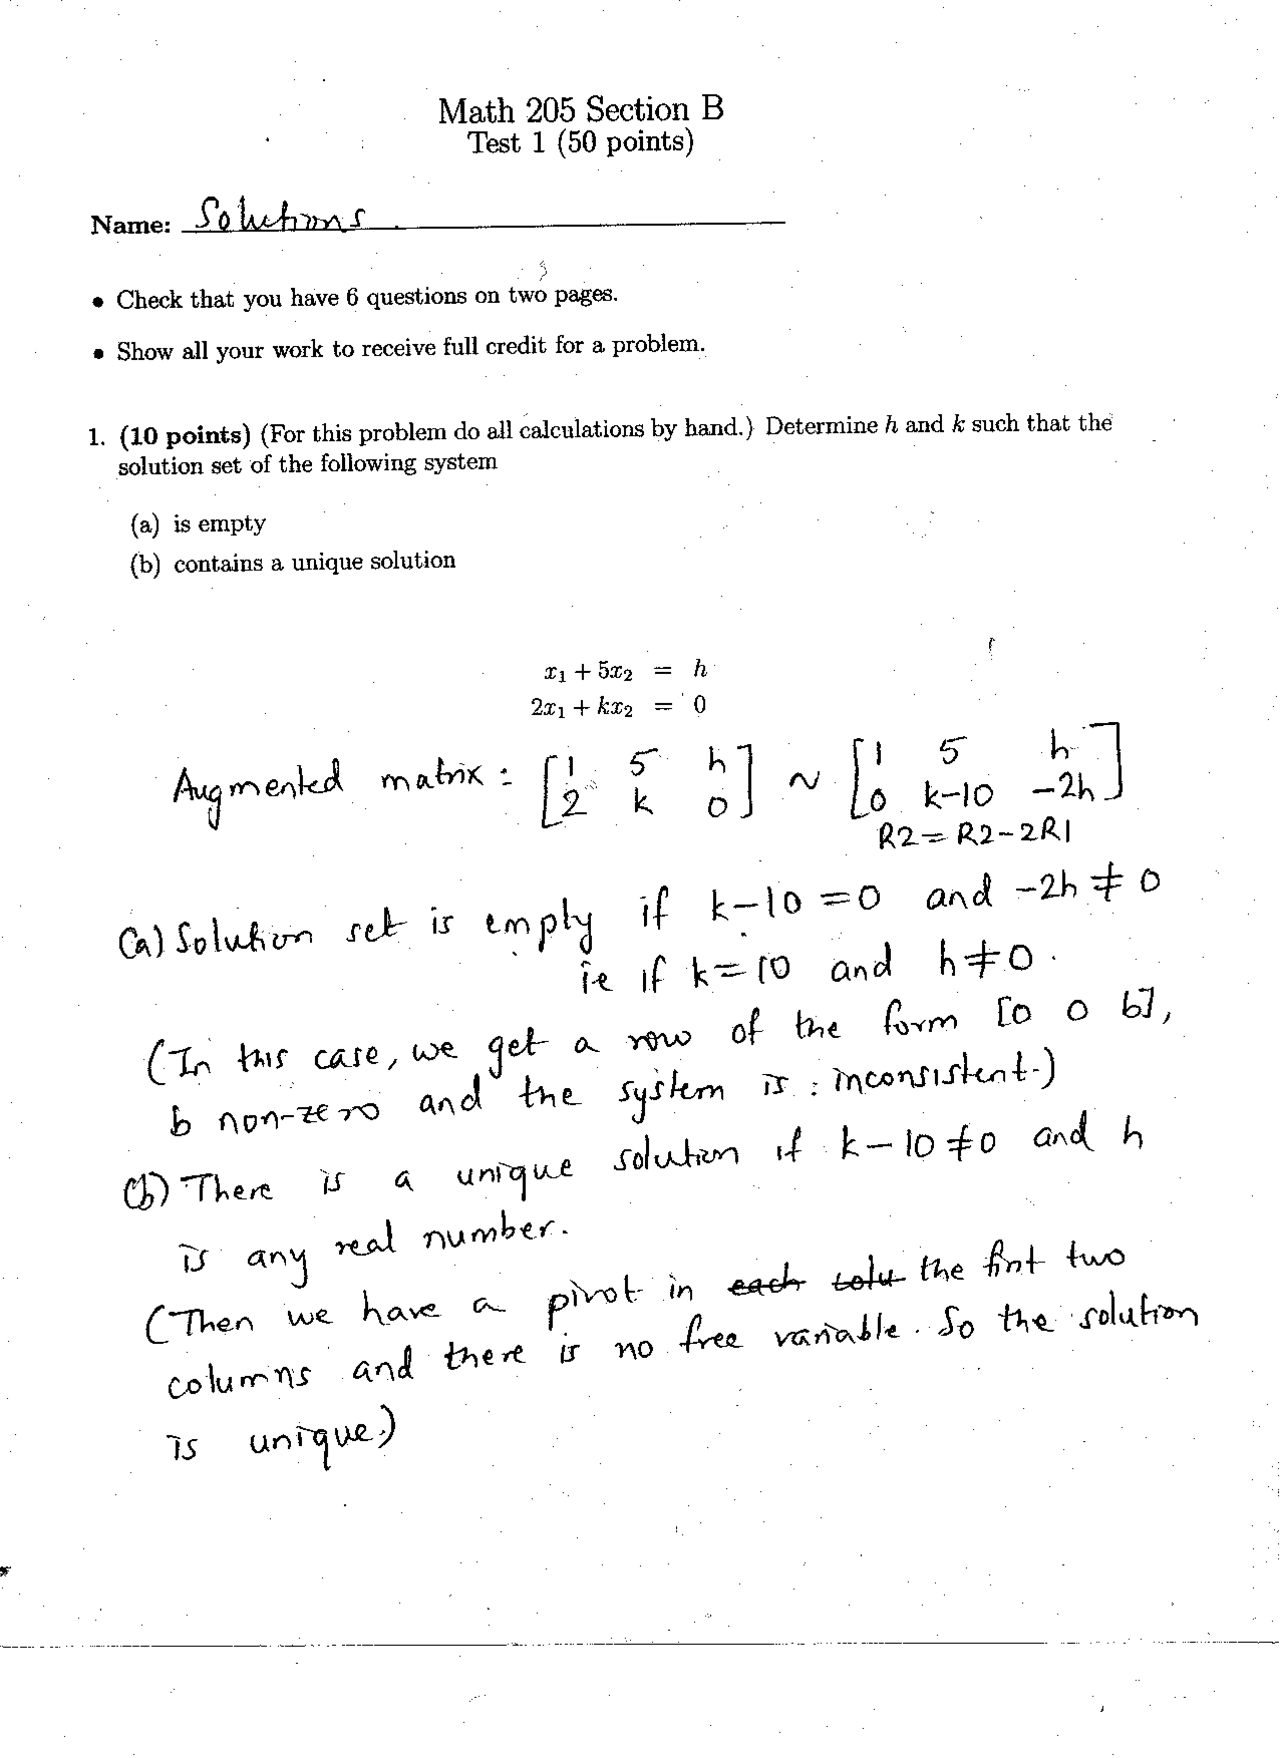 Math 205 Section B
Test 1 (50 points)
Name: Solutions
3
• Check that you have 6 questions on two pages.
• Show all your work to receive full credit for a problem.
1. (10 points) (For this problem do all calculations by hand.) Determine h and k such that the
solution set of the following system
(a) is empty
(b) contains a unique solution
x₁ + 5x₂ = h
2x₁ + kx₂ = 0
Augmented matrix: [1 5 h; 2 k 0] ~ [1 5 h; 0 k-10 -2h]
R2 = R2-2R1
(a) Solution set is empty if k-10=0 and -2h ≠ 0
ie if k=10 and h≠0.
(In this case, we get a row of the form [0 0 b],
b non-zero and the system is inconsistent.)
(b) There is a unique solution if k-10≠0 and h
is any real number.
(Then we have a pivot in each colu the first two
columns and there is no free variable. So the solution
is unique.)